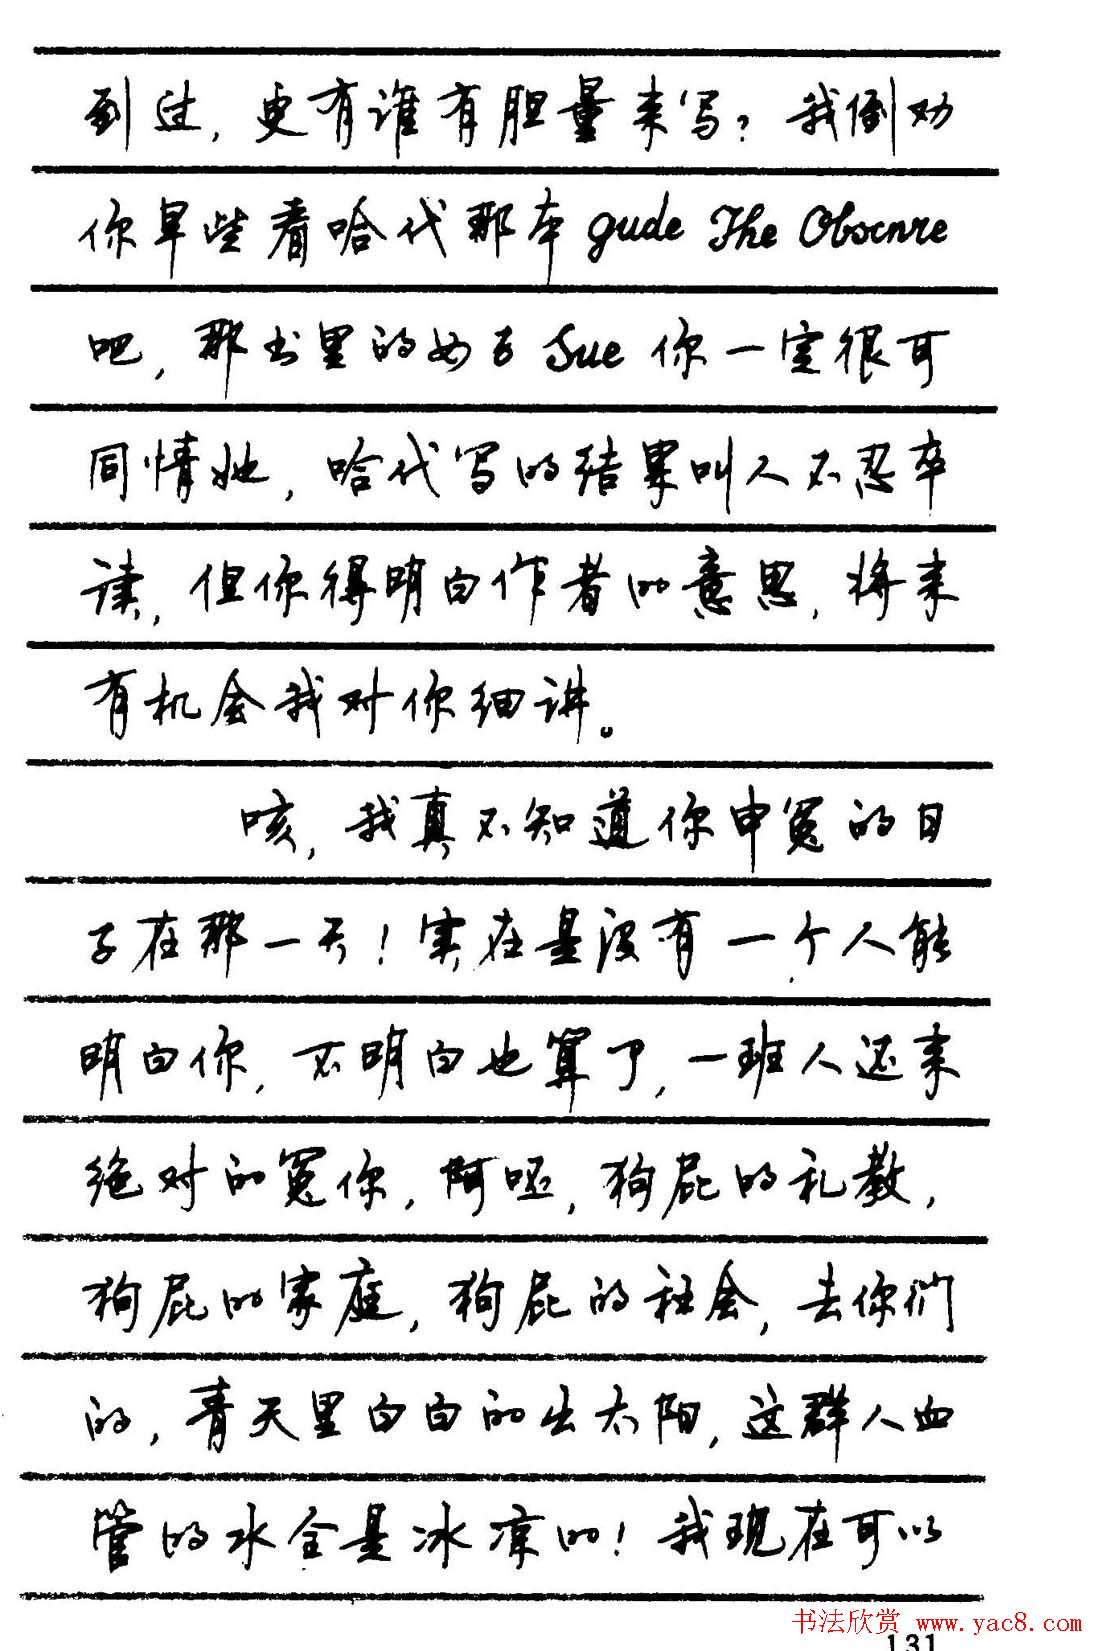 到过，更有谁有胆量来写？我倒劝
你早些看哈代那本 gude The Obscnre
吧，那书里的女子 Sue 你一定很可
同情她，哈代写的结果叫人不忍卒
读，但你得明白作者的意思，将来
有机会我对你细讲。
咳，我真不知道你申冤的日
子在那一天！实在是没有一个人能
明白你，不明白也算了，一班人还来
绝对的冤你，阿呸，狗屁的礼教，
狗屁的家庭，狗屁的社会，去你们
的，青天里白白的出太阳，这群人血
管的水全是冰凉的！我现在可以
书法欣赏 www.yac8.com
131